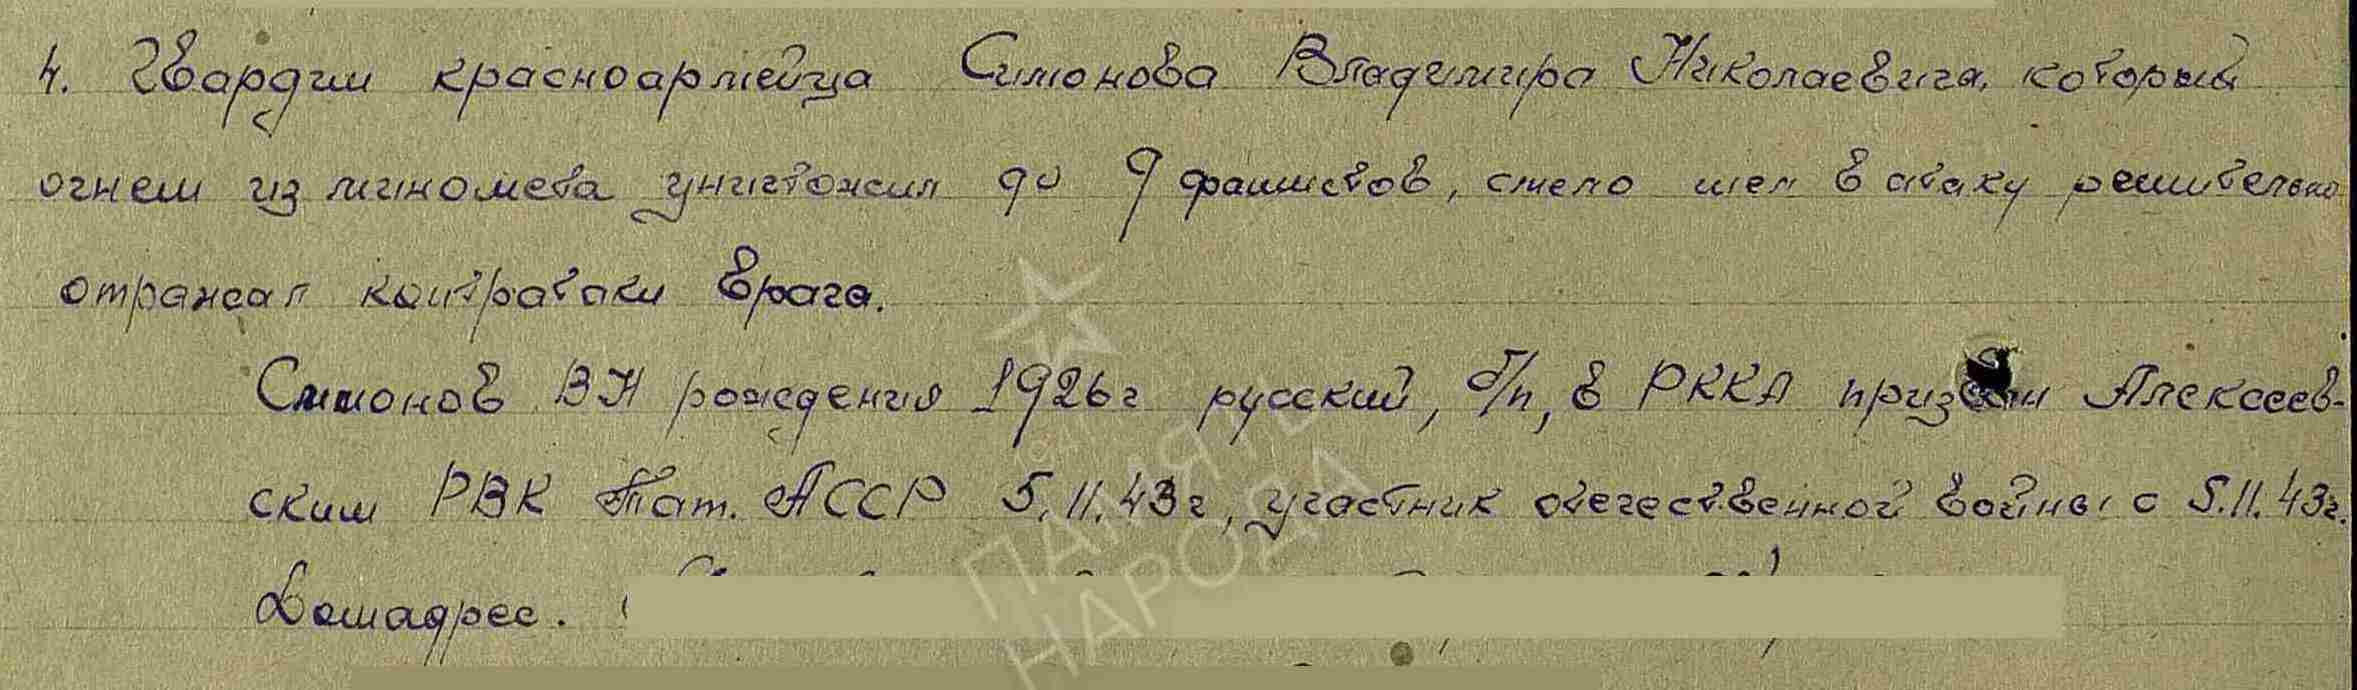 4. Гвардии красноармейца Симонова Владимира Николаевича, который
огнем из миномета уничтожил до 9 фашистов, смело шел в атаку решительно
отражал контратаки врага.
Симонов В Н рождения 1926г русский, б/п, в РККА призван Алексеев-
ским РВК Тат. АССР 5.11.43г, участник отечественной войны с 5.11.43г.
Домадрес.
ПАМЯТЬ
НАРОДА